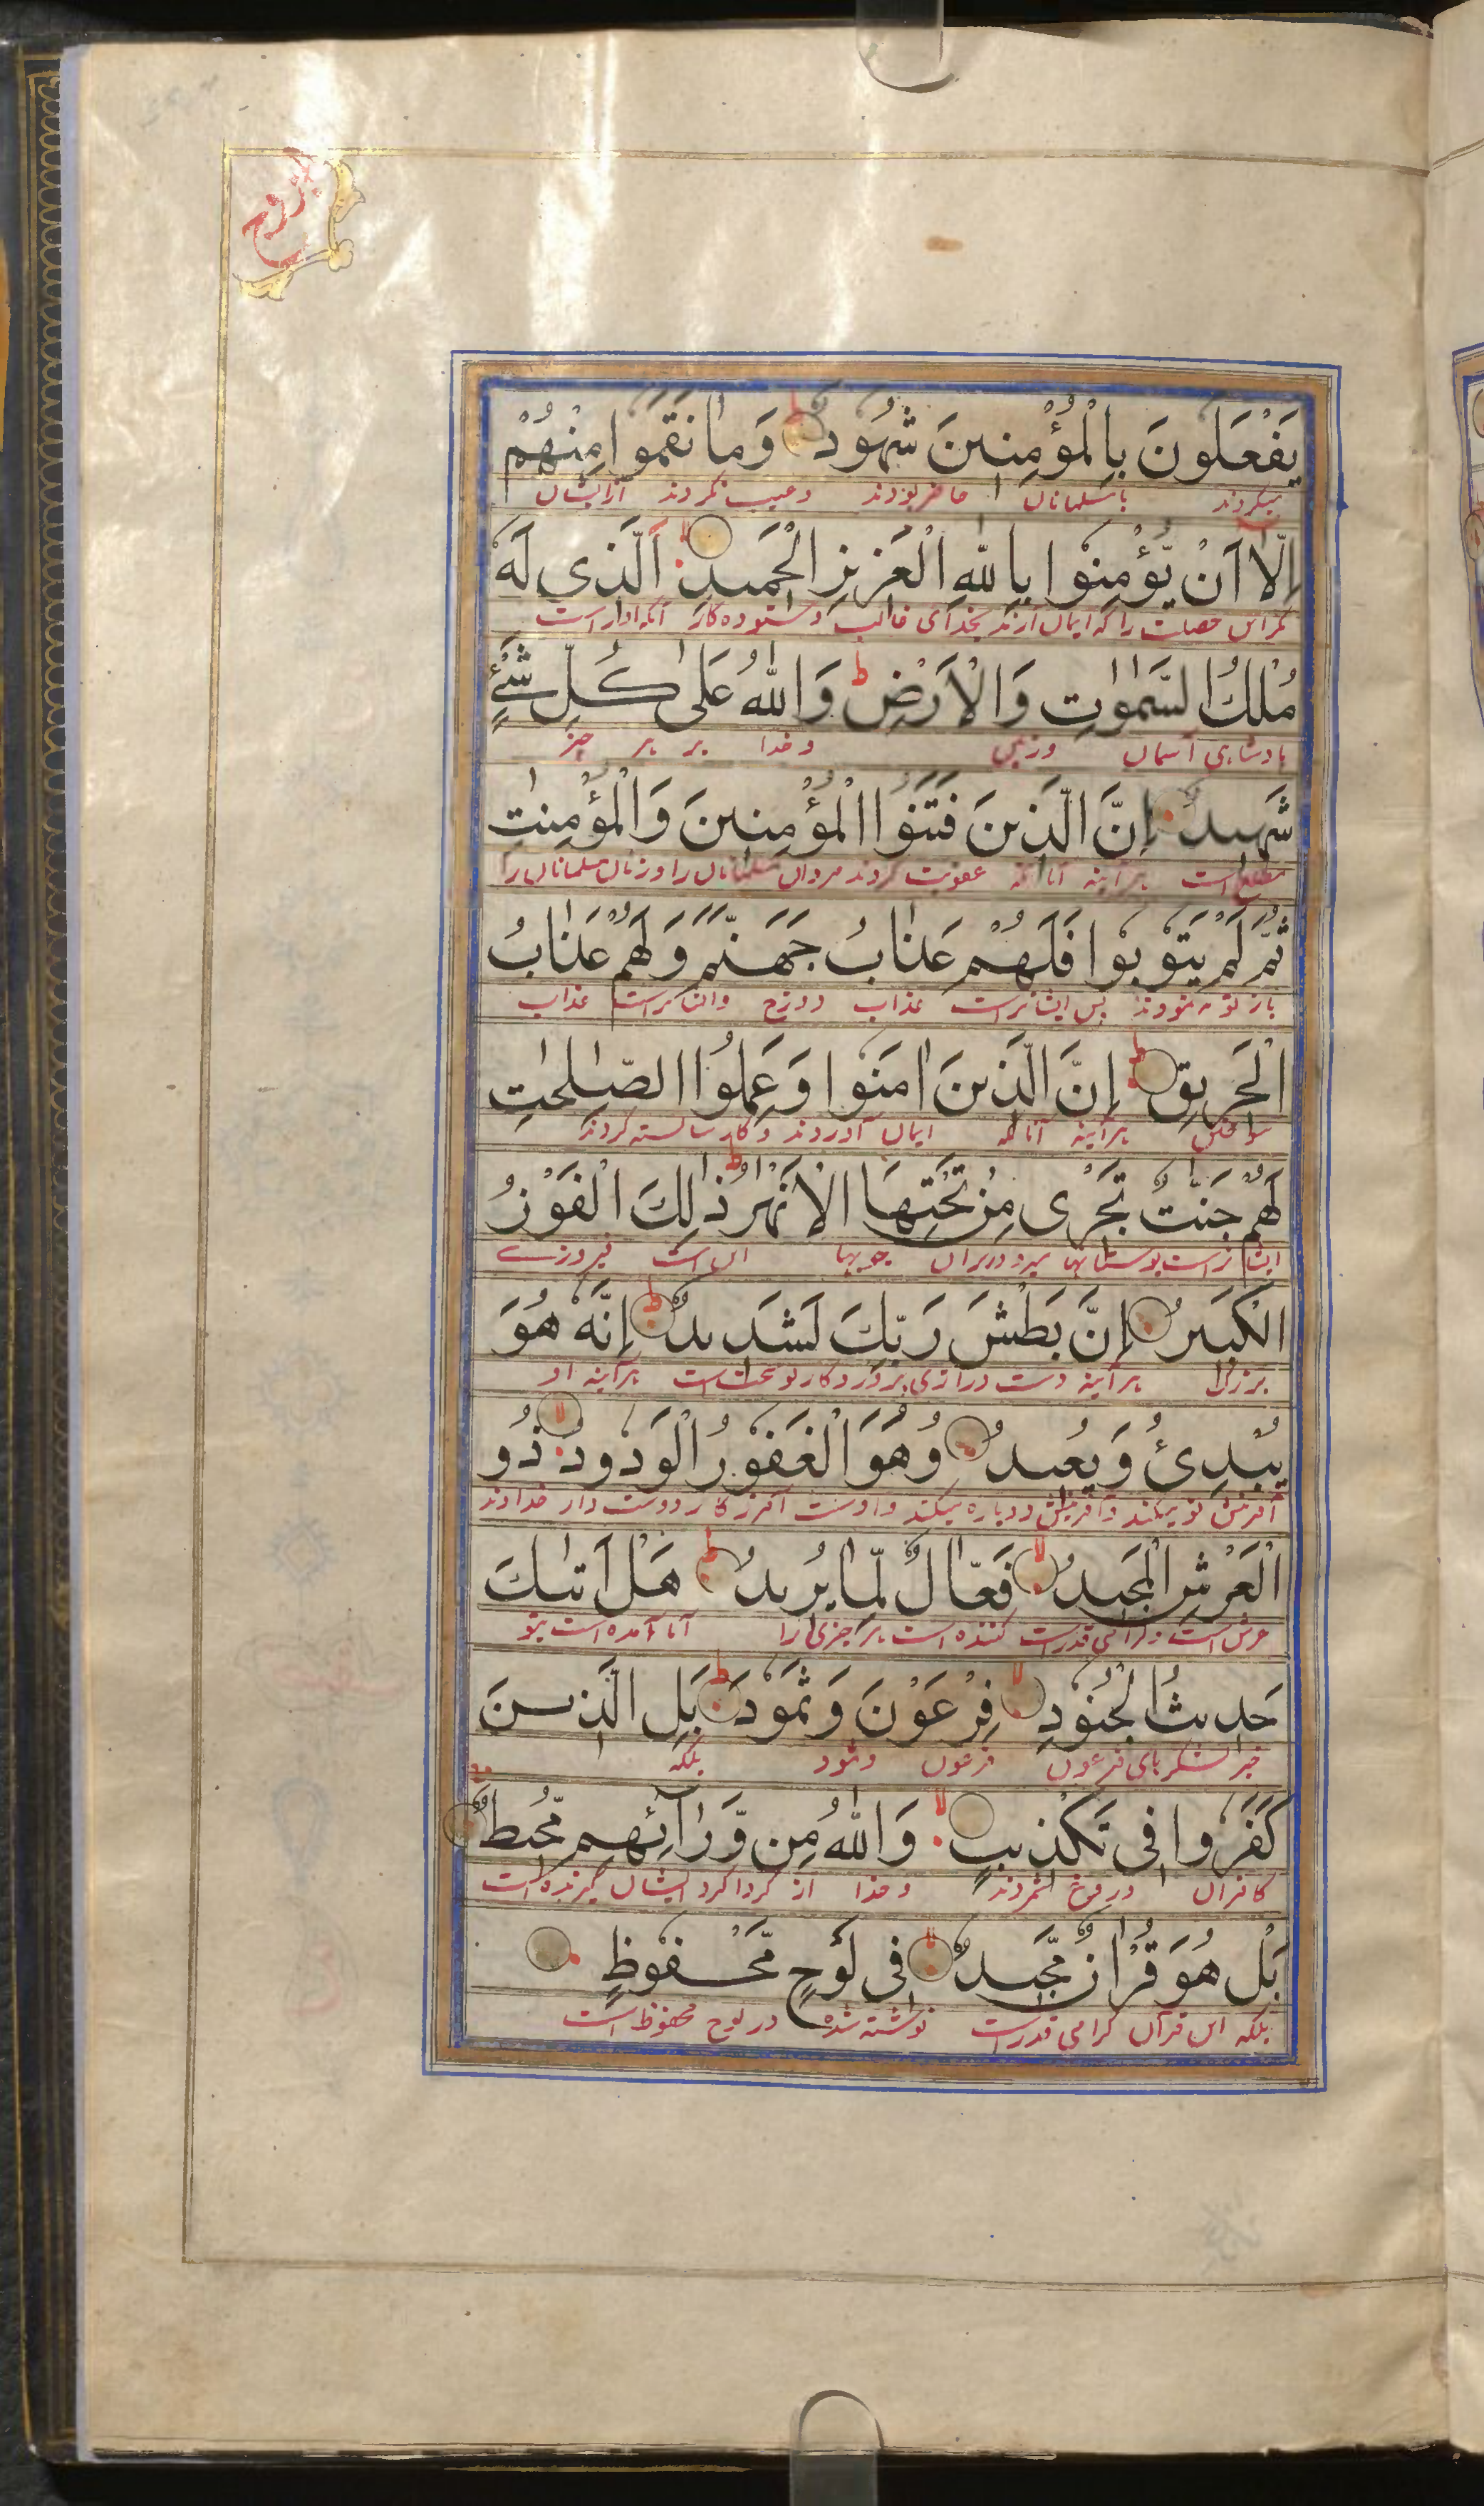 البروج
يَفْعَلُونَ بِالْمُؤْمِنِينَ شُهُودٌ وَمَا نَقَمُوا مِنْهُمْ
میکردند بامسلمانان حاضر بودند وعیب نکردند از ایشان
اِلَّا اَنْ يُّؤْمِنُوْا بِاللّٰهِ الْعَزِيزِ الْحَمِيدِ الَّذِى لَهٗ
مگر این خصلت را که ایمان آرند بخدای غالب وستوده کار آنکه اوراست
مُلْكُ السَّمٰوٰتِ وَالْاَرْضِ ط وَاللّٰهُ عَلٰى كُلِّ شَىْءٍ
بادشاهی آسمان وزمین وخدا بر هر چیز
شَهِيدٌ اِنَّ الَّذِينَ فَتَنُوا الْمُؤْمِنِينَ وَالْمُؤْمِنٰتِ
مطلع است هرآینه آنانکه عقوبت کردند مردان مسلمانان را وزنان مسلمانان را
ثُمَّ لَمْ يَتُوبُوا فَلَهُمْ عَذَابُ جَهَنَّمَ وَلَهُمْ عَذَابُ
باز توبه ننمودند پس ایشانراست عذاب دوزخ وایشانراست عذاب
الْحَرِيقِ ط اِنَّ الَّذِينَ اٰمَنُوا وَعَمِلُوا الصّٰلِحٰتِ
سوختن هرآینه آنانکه ایمان آوردند وکار شایسته کردند
لَهُمْ جَنّٰتٌ تَجْرِى مِنْ تَحْتِهَا الْاَنْهٰرُ ط ذٰلِكَ الْفَوْزُ
ایشانراست بوستانها میرود زیر آن جویها این است فیروزی
الْكَبِيرُ اِنَّ بَطْشَ رَبِّكَ لَشَدِيدٌ ط اِنَّهٗ هُوَ
بزرگ هرآینه دست درازی پروردگار تو سخت است هرآینه او
يُبْدِئُ وَيُعِيدُ وَهُوَ الْغَفُورُ الْوَدُودُ لا ذُو
آفرینش نو میکند وآفرینش دوباره میکند واوست آمرزگار دوست دار خداوند
الْعَرْشِ الْمَجِيدُ لا فَعَّالٌ لِّمَا يُرِيدُ ط هَلْ اَتٰىكَ
عرش است گرامی قدرست کننده است هر چیزی را آیا آمده است بتو
حَدِيثُ الْجُنُودِ لا فِرْعَوْنَ وَثَمُودَ ط بَلِ الَّذِينَ
خبر لشکرهای فرعون فرعون وثمود بلکه
كَفَرُوا فِى تَكْذِيبٍ لا وَاللّٰهُ مِن وَّرَآئِهِم مُّحِيطٌ
کافران در دروغ شمردند وخدا از گرداگرد ایشان گیرنده است
بَلْ هُوَ قُرْاٰنٌ مَّجِيدٌ لا فِى لَوْحٍ مَّحْفُوظٍ
بلکه این قرآن گرامی قدراست نوشته شده در لوح محفوظ است